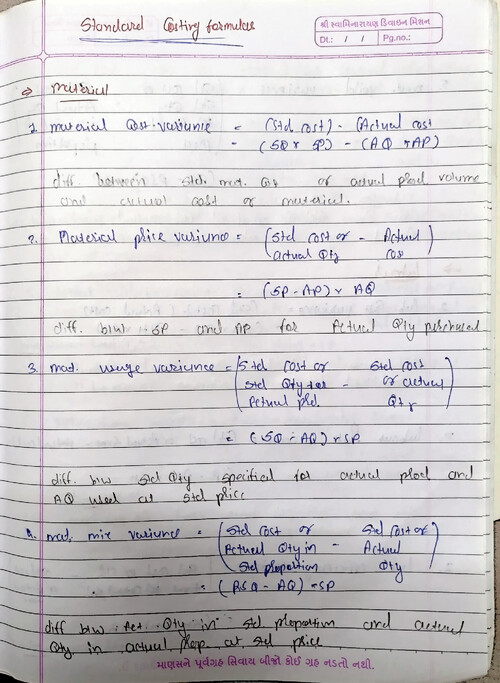 Standard Costing formulas
શ્રી સ્વામિનારાયણ ડિવાઇન મિશન
Dt.: / / Pg.no.:
⇒ material
1. material Cost variance = (Std cost) - (Actual cost
- (SQ × SP) - (AQ × AP)
diff. between std. mat. of actual prod volume
and actual cost of material.
2. Material price variance = (Std cost of - Actual)
actual Qty cos
= (SP - AP) × AQ
diff. b/w SP and AP for Actual Qty purchased
3. mat. usage variance = (Std cost of Std cost
Std Qty for - of actual
Actual prd. Qty)
= (SQ - AQ) × SP
diff. b/w std Qty specified for actual prod and
AQ used at std price
4. mat. mix variance = (Std cost of Std cost of
Actual Qty in - Actual
Std proportion Qty)
= (RSQ - AQ) × SP
diff b/w Act. Qty in std proportion and actual
Qty in actual prop. at std price
માણસને પૂર્વગ્રહ સિવાય બીજો કોઈ ગ્રહ નડતો નથી.